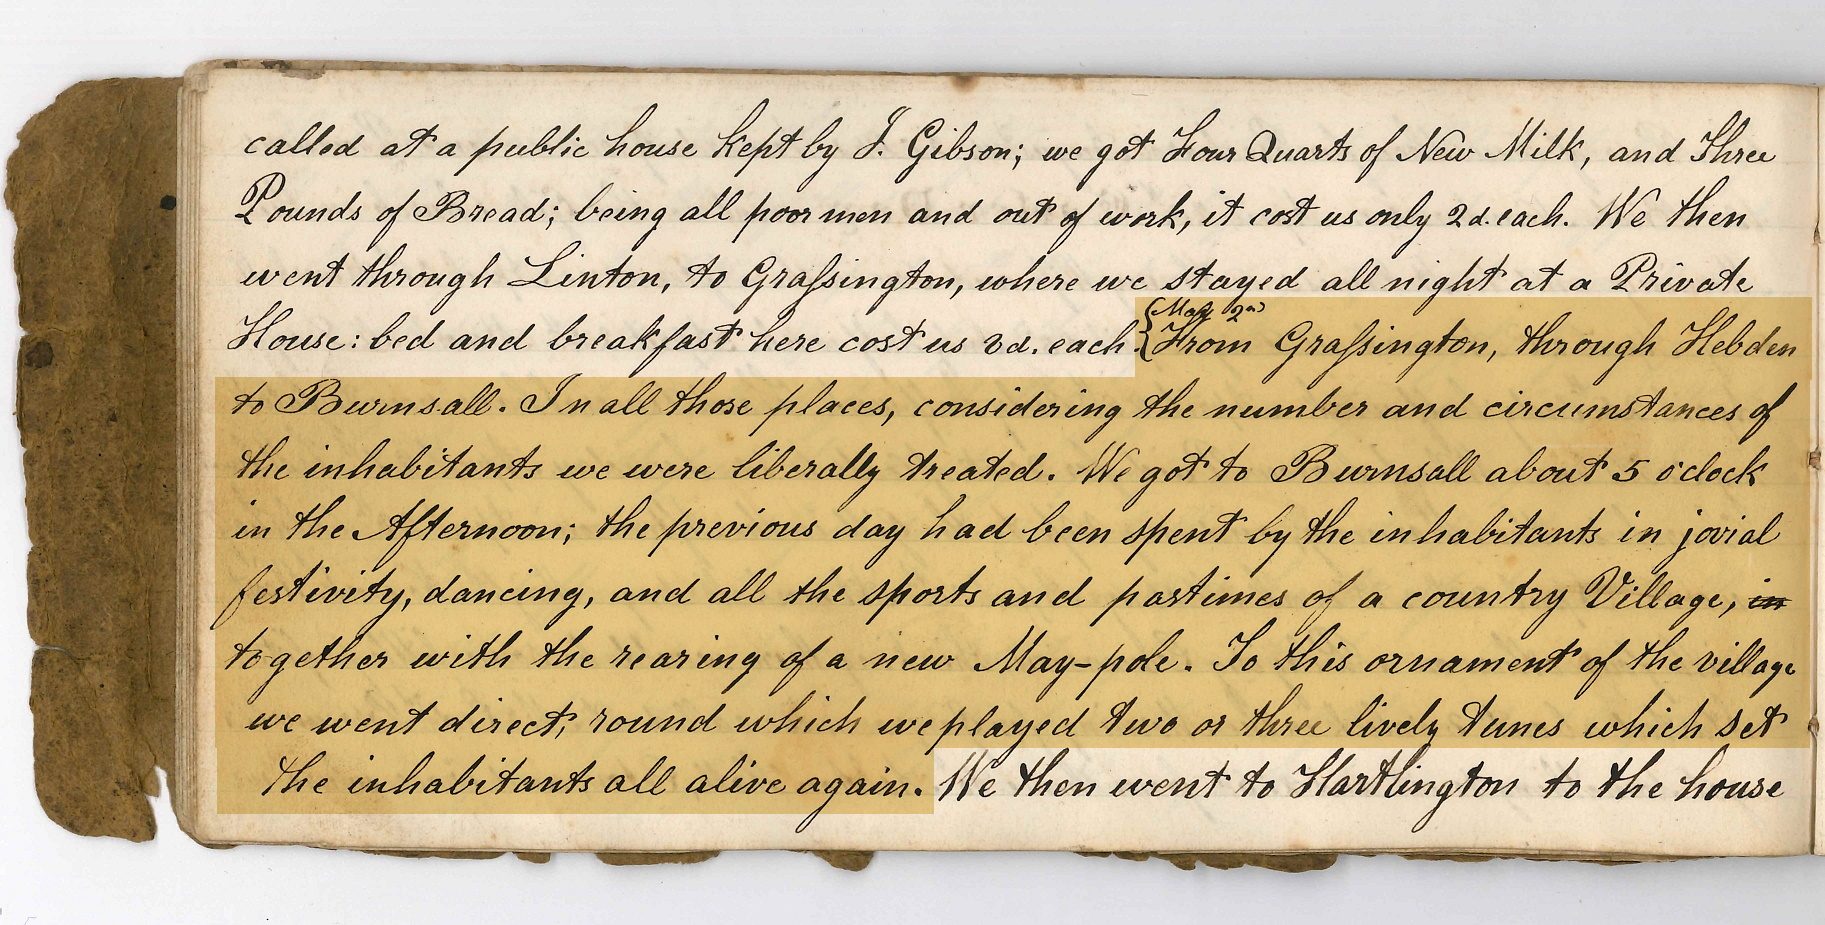 called at a public house kept by J. Gibson; we got Four Quarts of New Milk, and Three
Pounds of Bread; being all poor men and out of work, it cost us only 2d. each. We then
went through Linton, to Graſsington, where we stayed all night at a Private
House: bed and breakfast here cost us 3d. each.
May 2nd
From Graſsington, through Hebden
to Burnsall. In all those places, considering the number and circumstances of
the inhabitants we were liberally treated. We got to Burnsall about 5 o'clock
in the Afternoon; the previous day had been spent by the inhabitants in jovial
festivity, dancing, and all the sports and pastimes of a country Village, in
together with the rearing of a new May-pole. To this ornament of the village
we went direct, round which we played two or three lively tunes which set
the inhabitants all alive again. We then went to Hartlington to the house